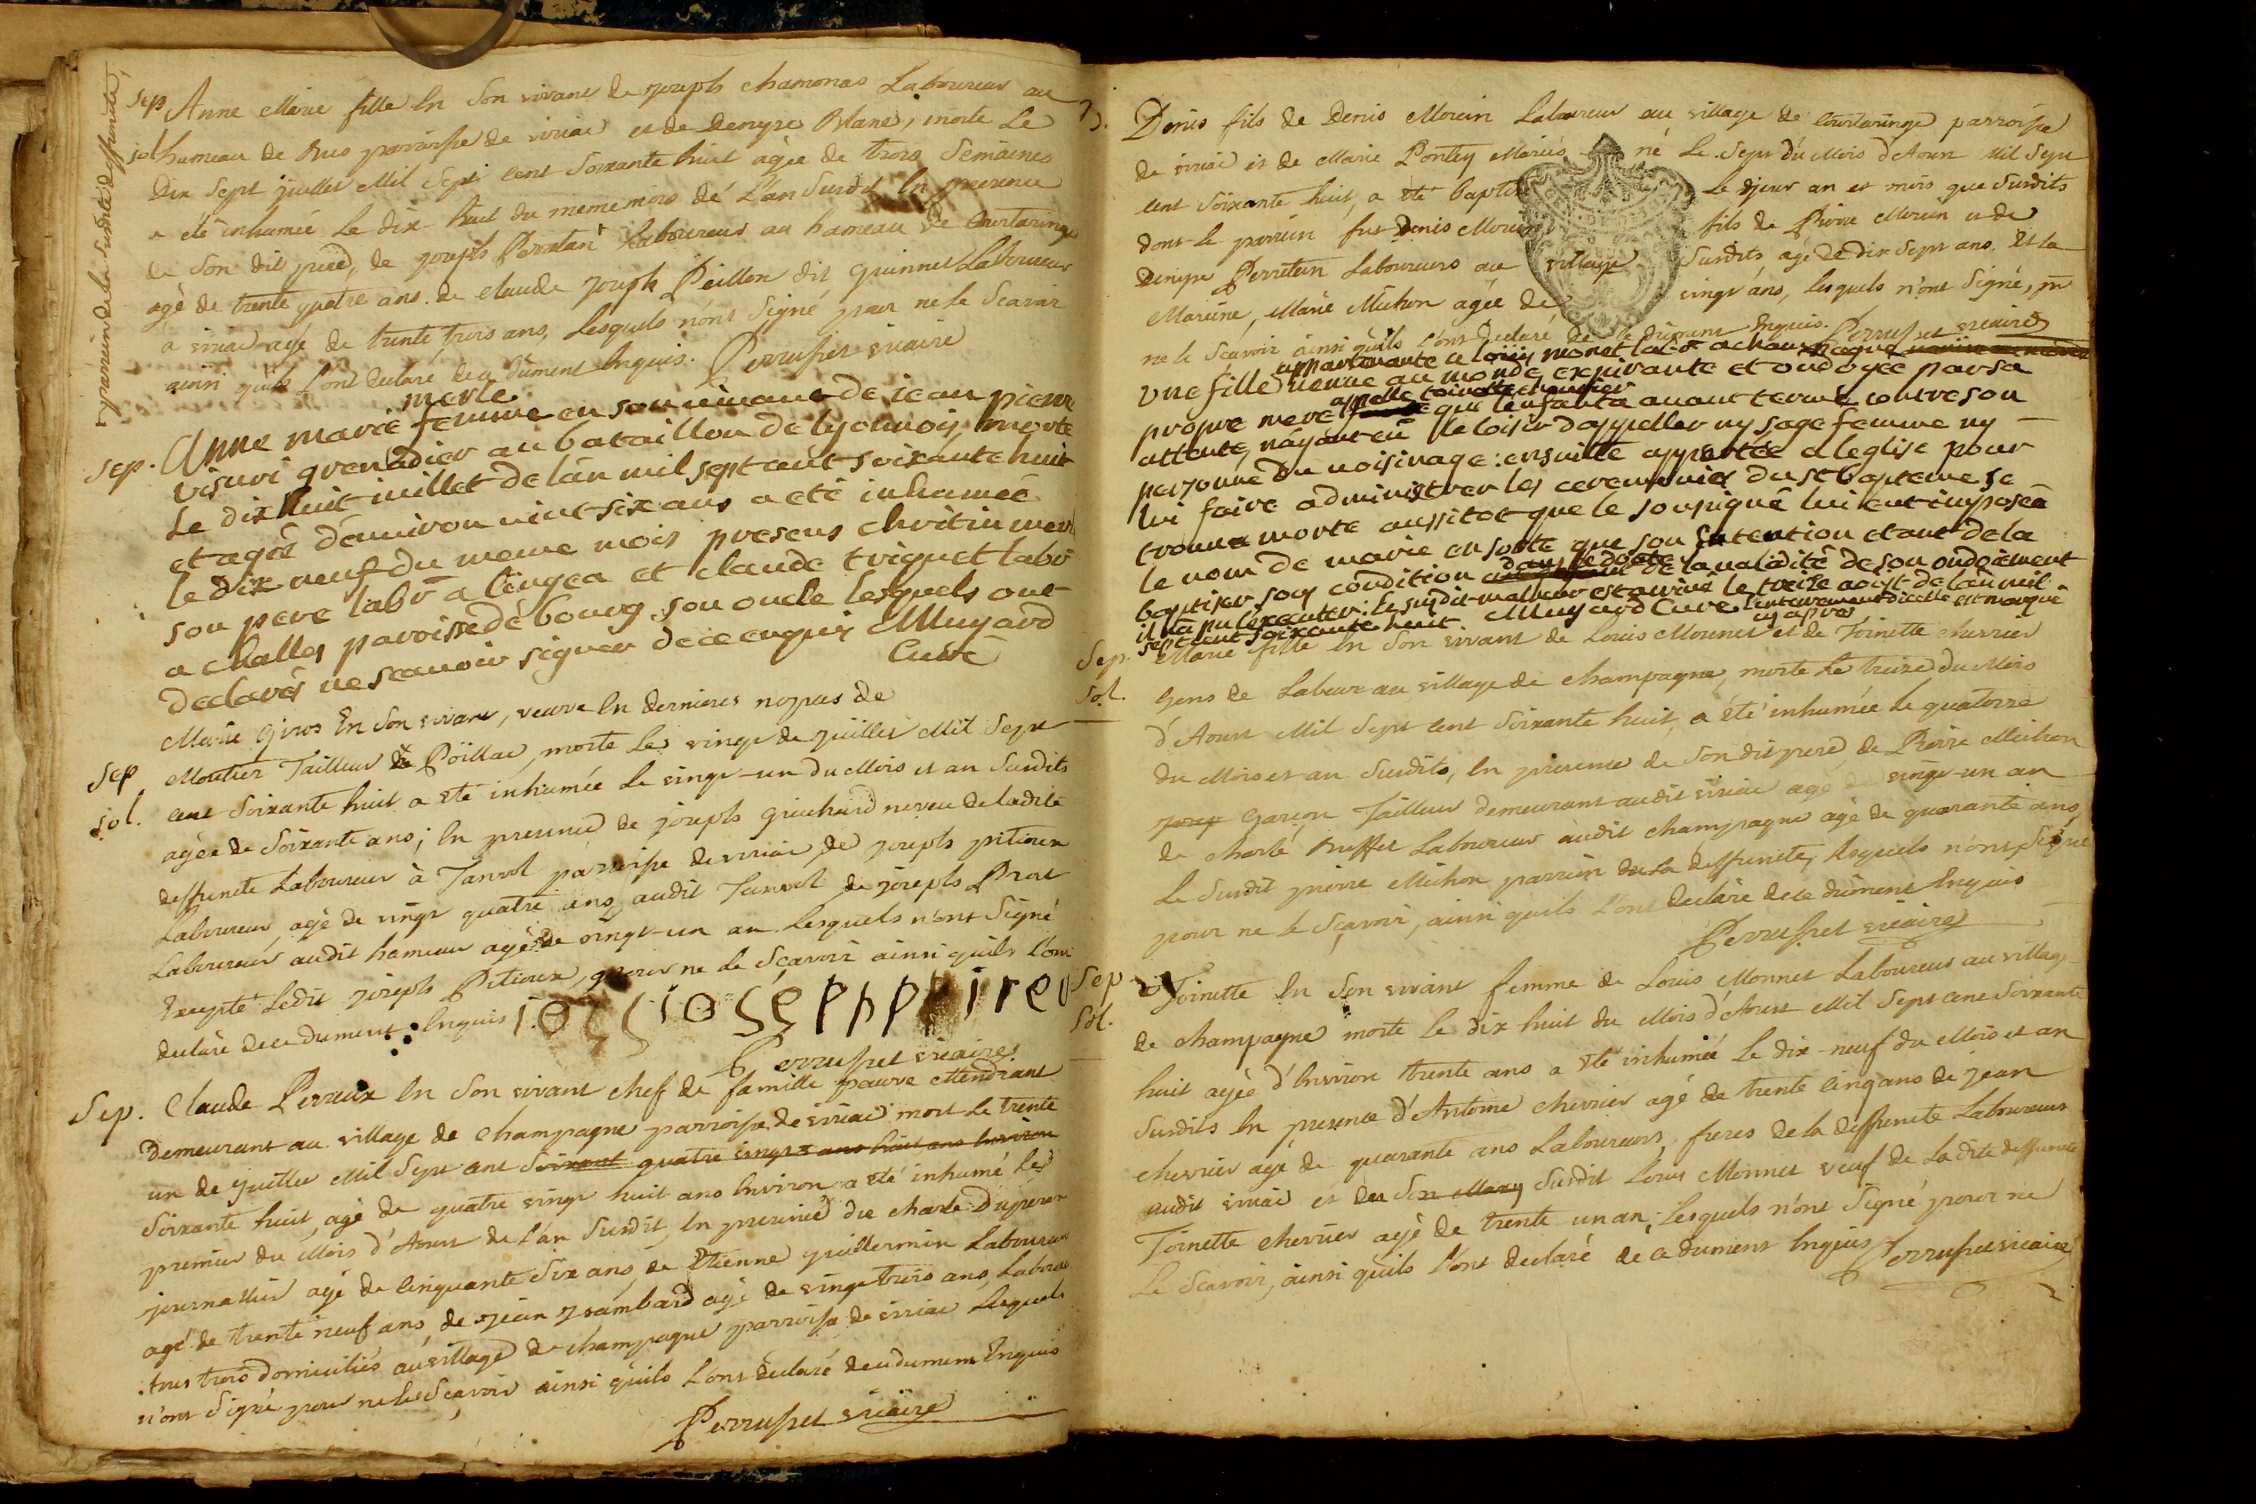 parrein de la susdite deffuncte,
Sep Anne Marie fille En Son vivant de joseph chamonas Laboureur au
sol hameau de Rus parroisse de viriac et de Denyse Blanc, morte Le
Dix Sept juillet Mil Sept cent Soixante huit agée de trois Semaines
a été inhumée Le dix huit du meme mois de L'an Susdit En presence
de Son dit pere, de joseph Perratan Laboureur au hameau de Curtaringe
agé de trente quatre ans. de claude joseph Peillon dit guinnet Laboureur
à viriac agé de trente trois ans, Lesquels n'ont Signé pour ne le Scavoir
ainsi qu'ils l'ont declaré de ce dûment Enquis. Perrusset vicaire
merle
sep. Anne marie femme en son vivant de jean pierre
visuri grenadier au bataillon de lyonnois, morte
le dix huit juillet de l'an mil sept cent soixante huit
et agée d'environ vint six ans a eté inhumée
le dix neuf du meme mois presens christin merl
son pere labr a lingea et claude triquet labr
a challes paroisse de bourg son oncle lesquels ont
declarés ne scavoir signer de ce enquis Muyard
Curé
Marie Giros En Son vivant, veuve En dernieres nopces de
Sep Moutier Tailleur de Poïllac, morte Le vingt de juillet Mil Sept
sol. cent Soixante huit a été inhumée Le vingt-un du Mois et an Susdits
agée de Soixante ans; En presence de joseph guichard neveu de ladite
deffuncte Laboureur à Tanvol parroisse de viriac, de joseph pitioux
Laboureur agé de vingt quatre ans audit Tanvol de joseph Prost
Laboureur audit hameau agé de vingt-un an Lesquels n'ont Signé
Excepté Ledit joseph Pitioux, pour ne Le Sçavoir ainsi qu'ils l'ont
declaré de ce dument Enquis joseph
Perrusset vicaire
Sep. Claude Perraux En Son vivant chef de famille pauvre Mendiant
Demeurant au village de Champagne parroisse de viriac mort Le trente
un de juillet Mil Sept cent Soixant quatre vingts ans huit ans Environ
Soixante huit, agé de quatre vingt huit ans Environ a été inhumé Le
premier du Mois d'Aoust de L'an Susdit, En presence de charle Duperon
journallier agé de Cinquante Six ans, de Etienne guillermin Laboureur
agé de trente neuf ans, de jean ysambard agé de vingt trois ans, Laboureur
tous trois domiciliés au village de champagne parroisse de viriac Lesquels
n'ont Signé pour ne le Sçavoir ainsi qu'ils L'ont declaré de ce dument Enquis
Perrusset vicaire
Denis fils de Denis Morein Laboureur au village de Curtaringe parroisse
de viriac et de Marie Ponthy Mariés né Le Sept du Mois d'Aoust Mil Sept
cent Soixante huit, a été baptisé Le djour an et mois que Susdits
dont le parrein fut Denis Morein fils de Pierre Morein et de
Denyse Perretan Laboureurs au village Susdits agé de dix Sept ans. Et la
Mareine, Marie Michon agée de vingt ans, Lesquels n'ont Signé, pr
ne le Scavoir ainsi qu'ils l'ont declaré de ce dument Enquis. Perrusset vicaire
appartenante a louis monet labr a champagne
une fille venue au monde, expirante et ondoyée par sa
appellée toinette chevrier
propre mere qui l'enfanta avant terme, contre son
attente, n'ayant eû le loisir d'appeller ny sage femme ny
personne du voisinage: ensuitte apportée a l'eglise pour
lui faire administrer les ceremonies du st bapteme se
trouva morte aussitot que le sousigné lui eut imposée
le nom de marie en sorte que son intention etant de la
baptiser sous condition dans le doute de la validité de son ondoiement
il n'a pu l'executer: le susdit malheur est arrivé le treize aoust de l'an mil
sept cent soixante huit Muyard Curé l'enterrement d'icelle est marqué
cy apres
Sep. Marie fille En Son vivant de Louis Monnet et de Toinette chevrier
Sol. Gens de Labeur au village de champagne, morte Le treize du Mois
d'Aoust Mil Sept cent Soixante huit, a été inhumée Le quatorze
du Mois et an Susdits, En presence de Son dit pere, de Pierre Michon
Garçon Tailleur demeurant audit viriac agé de vingt-un an
de charle Buffet Laboureur audit champagne agé de quarante ans,
Le Susdit pierre Michon parrein de la deffuncte, Lesquels n'ont Signé
pour ne le Sçavoir, ainsi qu'ils l'ont declaré de ce dûment Enquis
Perrusset vicaire
Sep Toinette En Son vivant femme de Louis Monnet Laboureur au village
Sol. de champagne morte Le dix huit du Mois d'Aoust Mil Sept cent Soixante
huit agée d'Environ trente ans a été inhumée Le dix-neuf du Mois et an
Susdits En presence d'Antoine chevrier agé de trente Cinq ans de jean
chevrier agé de quarante ans Laboureurs, freres de la deffuncte Laboureurs
audit viriac et du Susdit Louis Monnet veuf de La dite deffuncte
Toinette chevrier agé de trente un an; Lesquels n'ont Signé pour ne
Le Scavoir, ainsi qu'ils l'ont declaré de ce dument Enquis Perrusset vicaire